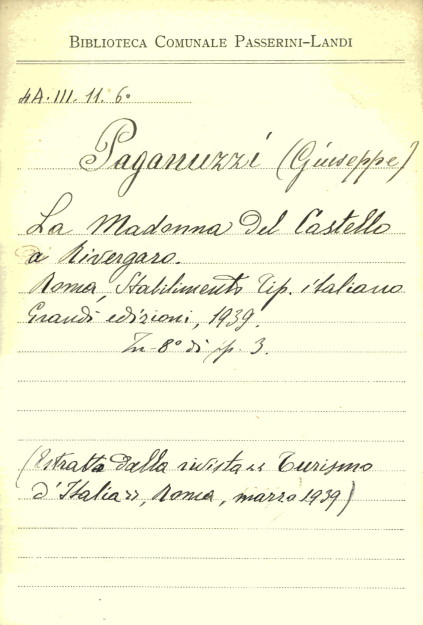 BIBLIOTECA COMUNALE PASSERINI-LANDI
4A.III.11.6°
Paganuzzi (Giuseppe)
La Madonna del Castello
a Rivergaro.
Roma, Stabilimento Tip. italiano
Grandi edizioni, 1939.
In-8° di pp. 3.
(Estratto dalla rivista «Turismo
d'Italia», Roma, marzo 1939)